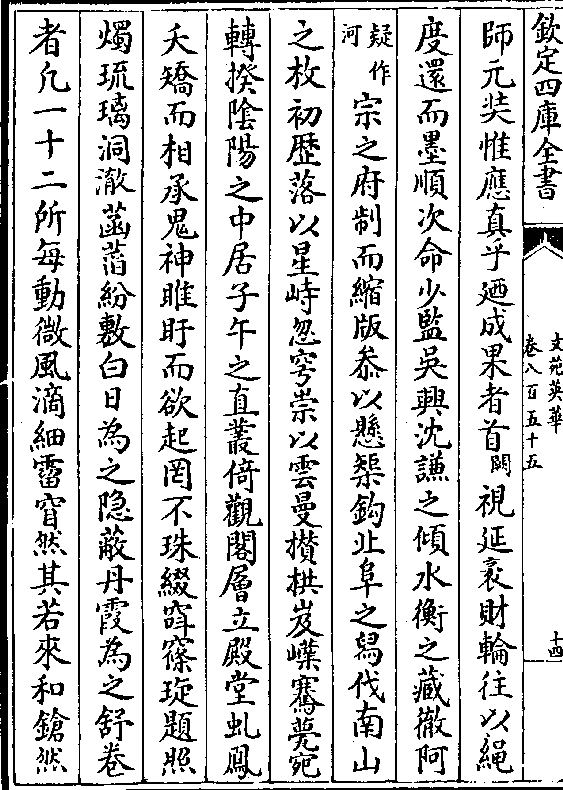 欽定四庫全書
文苑英華
卷八百五十五
十四
師元奘惟應真乎廼成果者首闕視延袤財輪往以繩
度還而墨順次命少監吳興沈謙之傾水衡之藏徹阿
疑作河宗之府制而縮版叅以懸槷鈎北阜之舄伐南山
之枚初歷落以星峙忽穹崇以雲曼攅栱岌嶫騫甍宛
轉揆隂陽之中居子午之直叢倚觀閣層立殿堂虬鳳
夭矯而相承鬼神睢盱而欲起罔不珠綴窋窱琁題照
燭琉璃洞澈菡萏紛敷白日為之隠蔽丹霞為之舒卷
者凡一十二所每動微風滴細霤窅然其若來和鎗然